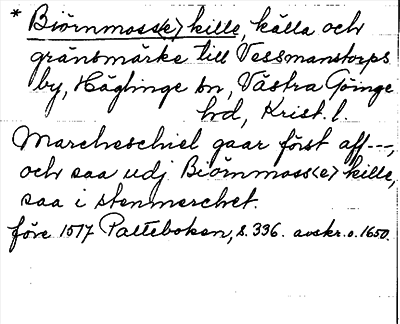 * Biörnmoss(e) kille, källa och
gränsmärke till Vessmanstorps
by, Häglinge sn, Västra Göinge
hd, Krist. l.
Marcheschiel gaar först aff ---,
och saa udj Biörnmoss(e) kille,
saa i stenmerchet.
före 1517 Palteboken, s. 336. avskr. o. 1650.